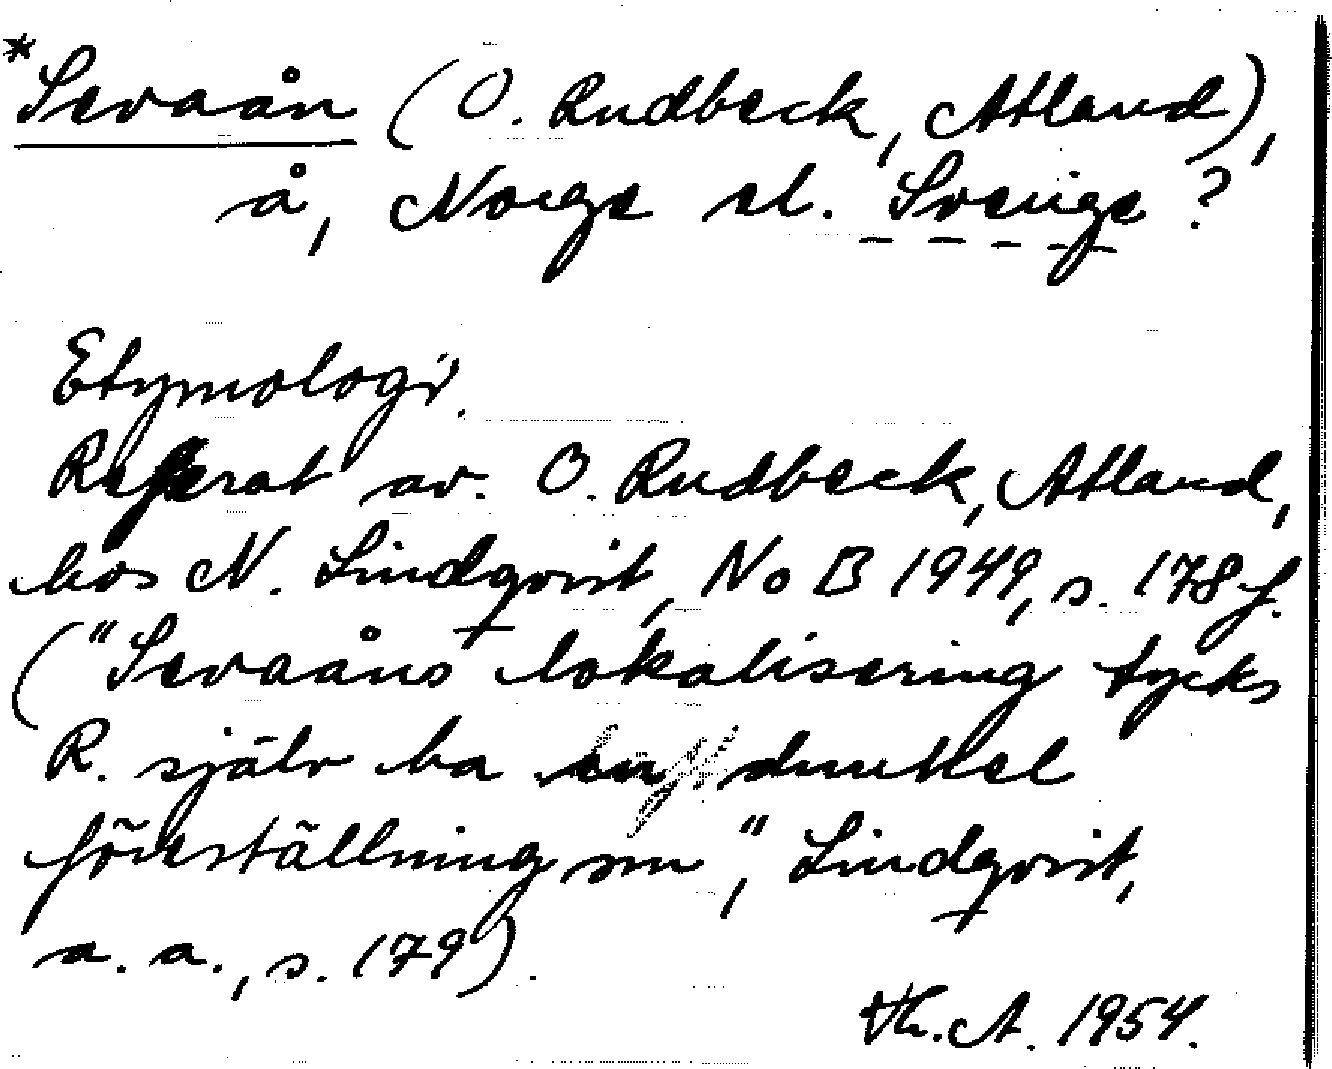 *Sevaån (O. Rudbeck, Atland),
å, Norge el. Sverige?
Etymologi.
Referat av O. Rudbeck, Atland,
hos N. Lindqvist, NoB 1949, s. 178 f.
("Sevaåns lokalisering tycks
R. själv ha haft dunkel
föreställning om", Lindqvist,
a. a., s. 179).
Th. A. 1954.